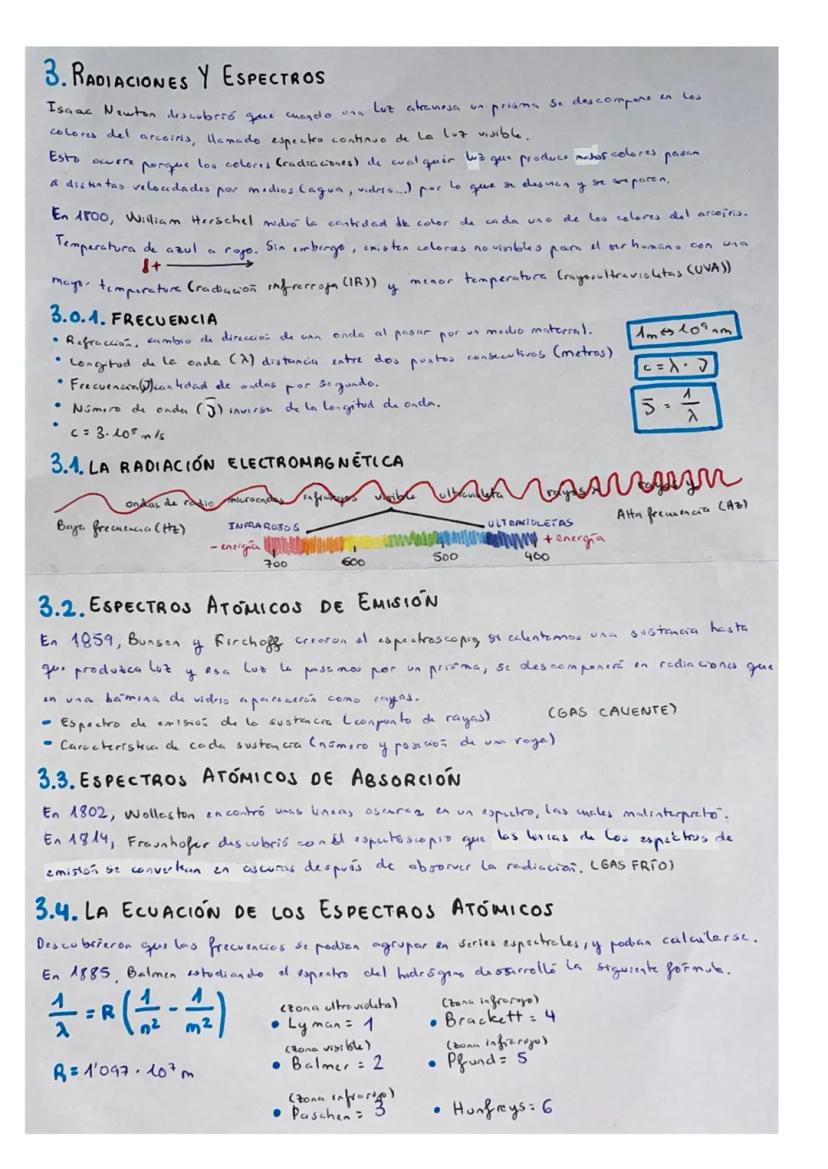 3. RADIACIONES Y ESPECTROS
Isaac Newton descubrió que cuando una luz atraviesa un prisma se descompone en los
colores del arcoiris, llamado espectro continuo de la luz visible.
Esto ocurre porque los colores (radiaciones) de cualquier luz que produce muchos colores pasan
a distintas velocidades por medios (agua, vidrio...) por lo que se desvían y se separan.
En 1800, William Herschel midió la cantidad de color de cada uno de los colores del arcoiris.
Temperatura de azul a rojo. Sin embargo, existen colores no visibles para el ser humano con una
+
mayor temperatura (radiación infrarroja (IR)) y menor temperatura (rayos ultravioletas (UVA))
3.0.1. FRECUENCIA
• Refracción, cambio de dirección de una onda al pasar por un medio material.
1m ⇔ 10⁹ nm
• Longitud de la onda (λ) distancia entre dos puntos consecutivos (metros)
c = λ · ν
• Frecuencia (ν) cantidad de ondas por segundo.
• Número de onda (ν̄) inversa de la longitud de onda.
ν̄ = 1/λ
• c = 3·10⁸ m/s
3.1. LA RADIACIÓN ELECTROMAGNÉTICA
ondas de radio microondas infrarrojos visible ultravioleta rayos x rayos γ
Baja frecuencia (Hz) Alta frecuencia (Hz)
INFRAROJOS ULTRAVIOLETAS
- energía + energía
700 600 500 400
3.2. ESPECTROS ATÓMICOS DE EMISIÓN
En 1859, Bunsen y Kirchoff crearon el espectroscopio, si calentamos una sustancia hasta
que produzca luz y esa luz la pasamos por un prisma, se descomponerá en radiaciones que
en una lámina de vidrio aparecerán como rayas.
- Espectro de emisión de la sustancia (conjunto de rayas) (GAS CALIENTE)
- Característica de cada sustancia (número y posición de una raya)
3.3. ESPECTROS ATÓMICOS DE ABSORCIÓN
En 1802, Wollaston encontró unas líneas oscuras en un espectro, las cuales malinterpretó.
En 1814, Fraunhofer descubrió con el espectoscopio que las líneas de los espectros de
emisión se convertían en oscuras después de absorver la radiación. (GAS FRÍO)
3.4. LA ECUACIÓN DE LOS ESPECTROS ATÓMICOS
Descubrieron que las frecuencias se podían agrupar en series espectrales, y podían calcularse.
En 1885, Balmen estudiando el espectro del hidrógeno desarrolló la siguiente fórmula.
1/λ = R (1/n² - 1/m²)
R = 1'097 · 10⁷ m
(zona ultravioleta)
• Lyman = 1
(zona visible)
• Balmer = 2
(zona infrarojo)
• Paschen = 3
(zona infrarojo)
• Brackett = 4
(zona infrarojo)
• Pfund = 5
• Hunfreys = 6